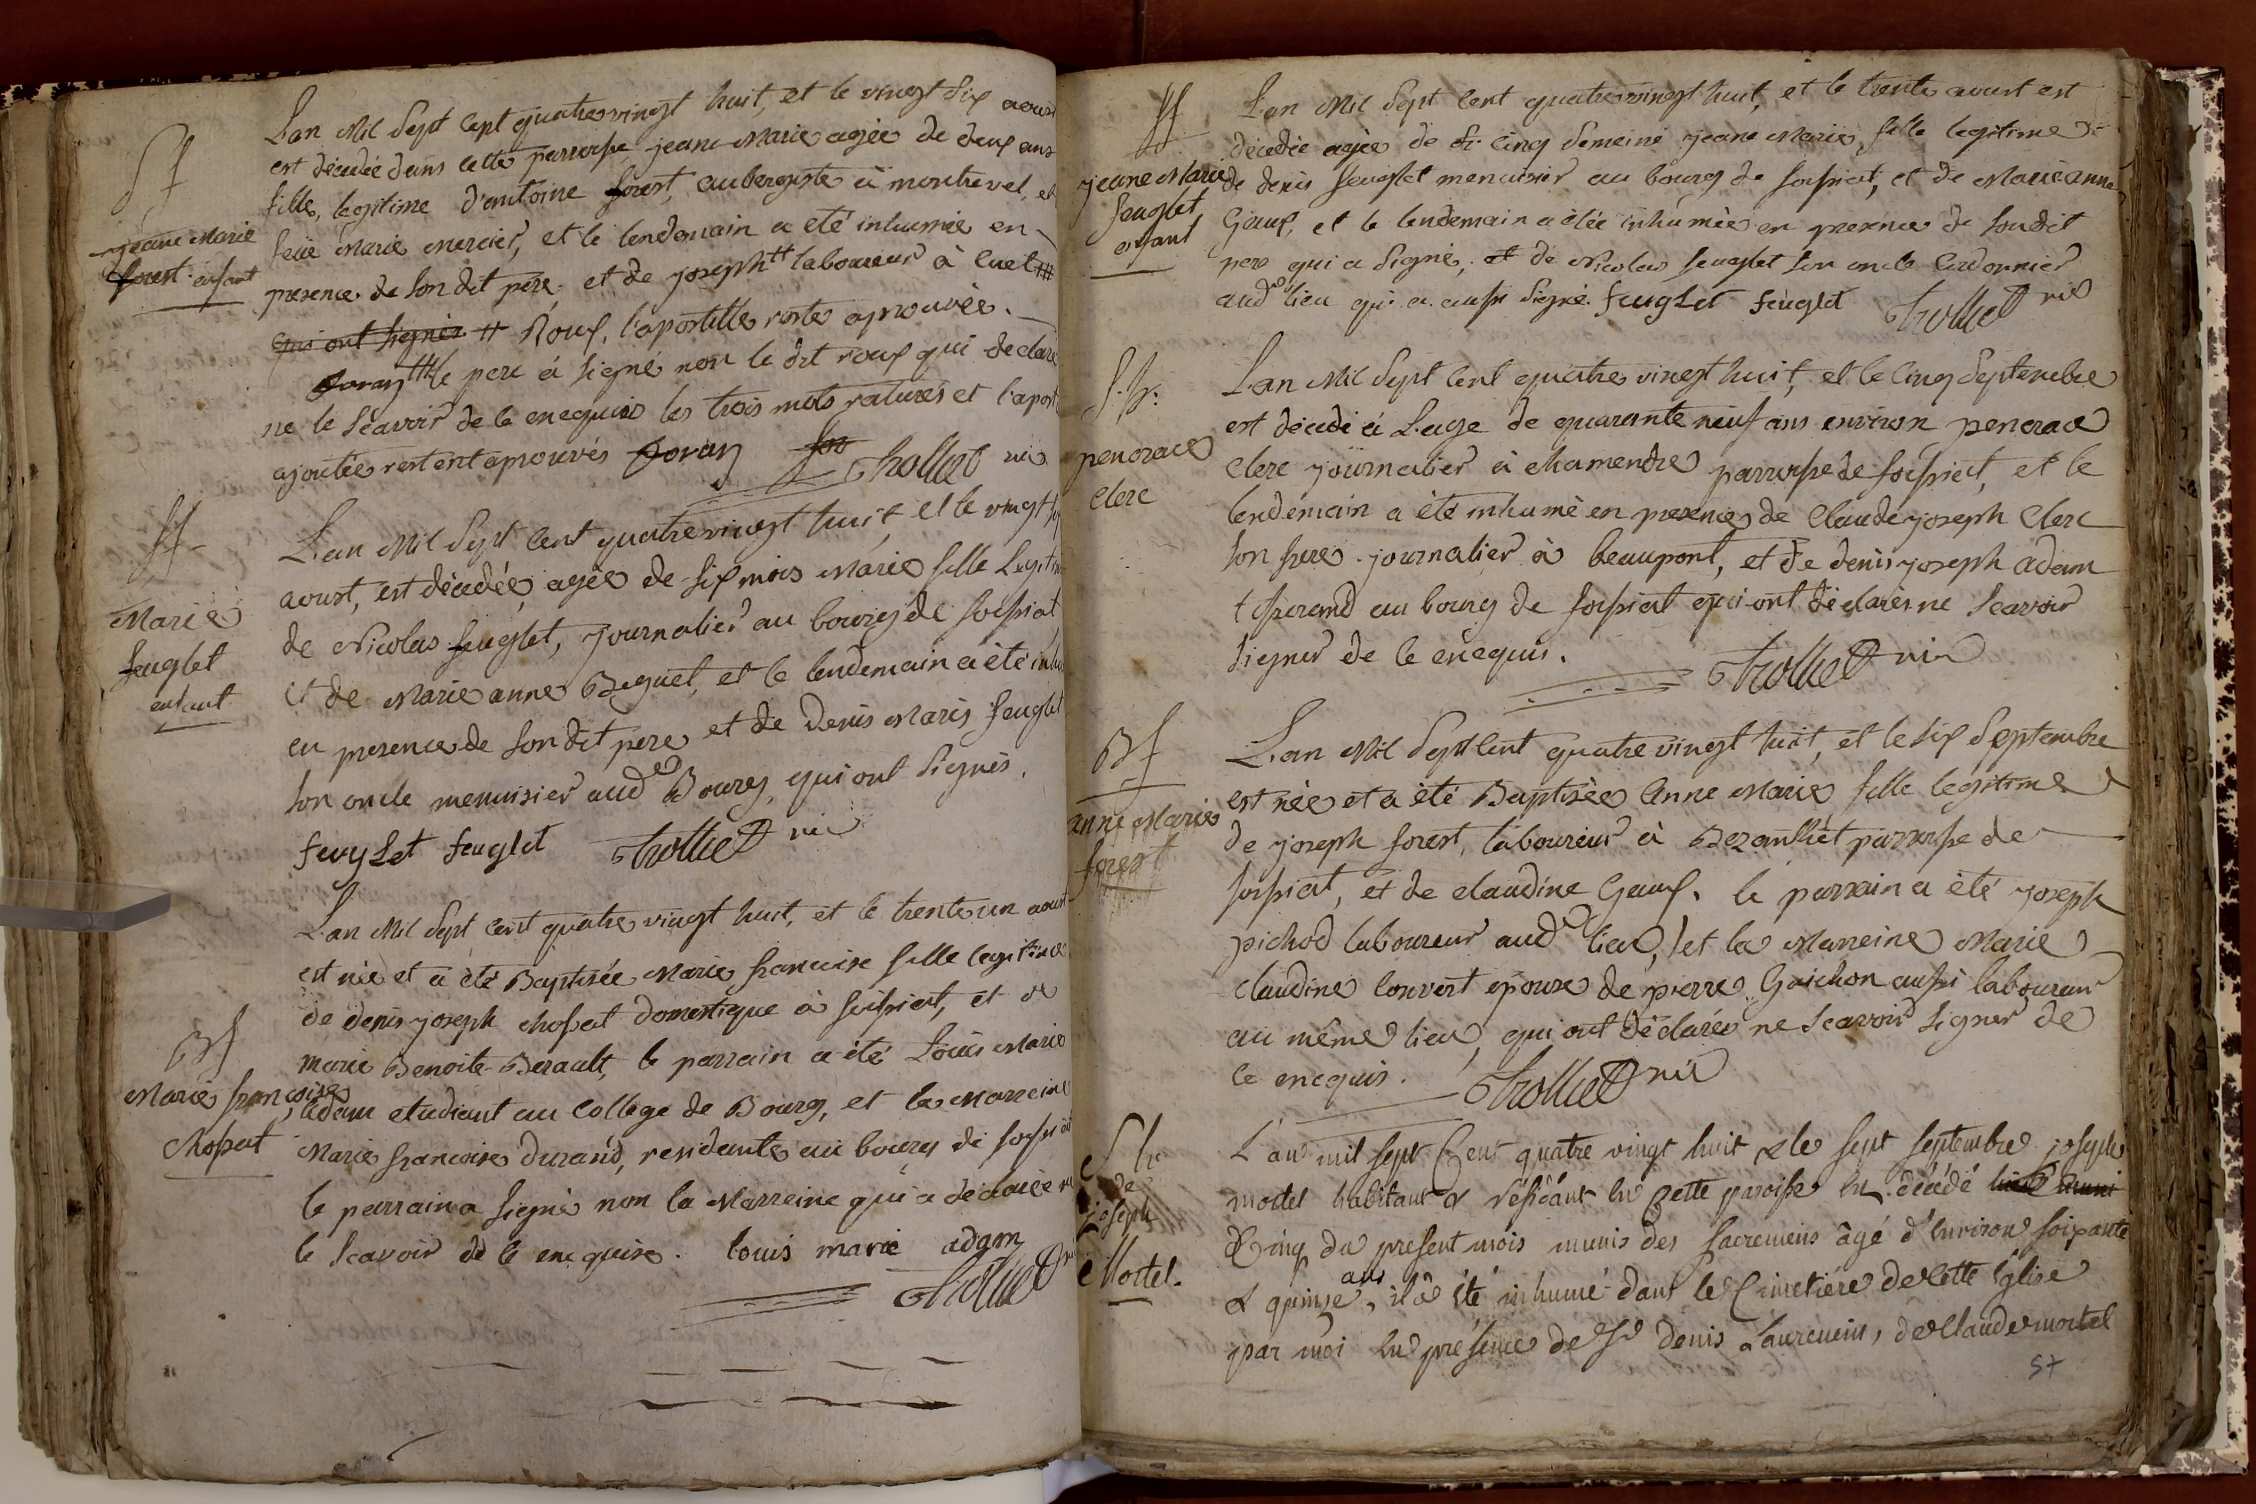 Sf
jeane Marie
forest enfant
L'an Mil Sept cent quatre vingt huit, et le vingt six aoust
est décédée dans cette parroisse jeane Marie agée de deux ans
fille legitime d'antoine forest, aubergiste à montrevel, et
feüe Marie Mercier, et le lendemain a eté inhumée en
presence de son dit pere et de joseph ++ laboureur à Cuet +++
qui ont signés ++ Roux, l'apostille reste aprouvée.
foray +++ le pere à signé non le dit roux qui declare
ne le sçavoir de ce enequis les trois mots raturés et l'apost
ajoutée restent aprouvés foray for Trolliet vic
Sf
Marie
feuglet
enfant
L'an Mil Sept Cent quatre vingt huit et le vingt
aoust, est décedée agée de six mois Marie fille Legitime
de Nicolas feuglet, journalier au bourg de foissiat
et de Marie anne Beguet, et le lendemain a été inhu
en presence de son dit pere et de Denis Marie feuglet
son oncle menuisier aud Bourg qui ont Signés.
feuglet feuglet Trolliet vic
Bf
Marie françoise
Chossat
L'an Mil Sept cent quatre vingt huit, et le trente un aoust
est née et a été Baptisée Marie françoise fille legitime
de denis joseph chossat domestique à foissiat, et de
marie Benoite Berault, le parrain a été Loüis Marie
adam etudiant au College de Bourg, et la Marreine
Marie françoise durand, residante au bourg de foissiat
le parrain a signé non la Marreine qui a déclaré ne
le sçavoir de ce enequise. louis marie adam
Trolliet
Sf
jeane Marie
feuglet
enfant
L'an Mil Sept Cent quatre vingt huit, et le trente aoust est
décedée agée de cinq semeine jeane Marie, fille legitime
de denis feuglet menuisier au bourg de foissiat, et de Marie anne
Gaux, et le lendemain a étée inhumée en presence de son dit
pere qui a signé, et de Nicolas feuglet son oncle Cordonnier
aud lieu qui a aussi signé. feuglet feuglet Trolliet vic
S.h.
pencrace
Clerc
L'an Mil Sept Cent quatre vingt huit, et le Cinq Septembre
est décedé à L'age de quarante neuf ans environ pencrace
Clerc journalier à chamendre parroisse de foissiat, et le
lendemain a été inhumé en presence de Claude joseph Clerc
son frere journalier à beaupont, et de denis joseph adam
tisserand au bourg de foissiat qui ont déclarés ne scavoir
signer de ce enequis.
Trolliet vic
Bf
anne Marie
forest
L'an Mil Sept Cent quatre vingt huit, et le six Septembre
est née et a été Baptisée Anne Marie fille legitime
de joseph forest, laboureur à Bezantliet parroisse de
foissiat, et de claudine Gaux. le parrain a été joseph
pichod laboureur aud lieu, et la Marreine Marie
claudine Convert epouse de pierre Guichon aussi laboureur
au même lieu, qui ont déclarés ne scavoir signer de
ce enequis. Trolliet vic
S h
de
joseph
Mortel.
L'an mil sept Cent quatre vingt huit & le sept septembre joseph
mortel habitant & résidant en Cette paroisse est décédé
Cinq du present mois munis des sacremens âgé d'environ soixante
& quinze ans, il a été inhumé dans le Cimetière de Cette Eglise
par moi en présence de Sr denis Laurencin, de Claude mortel
57